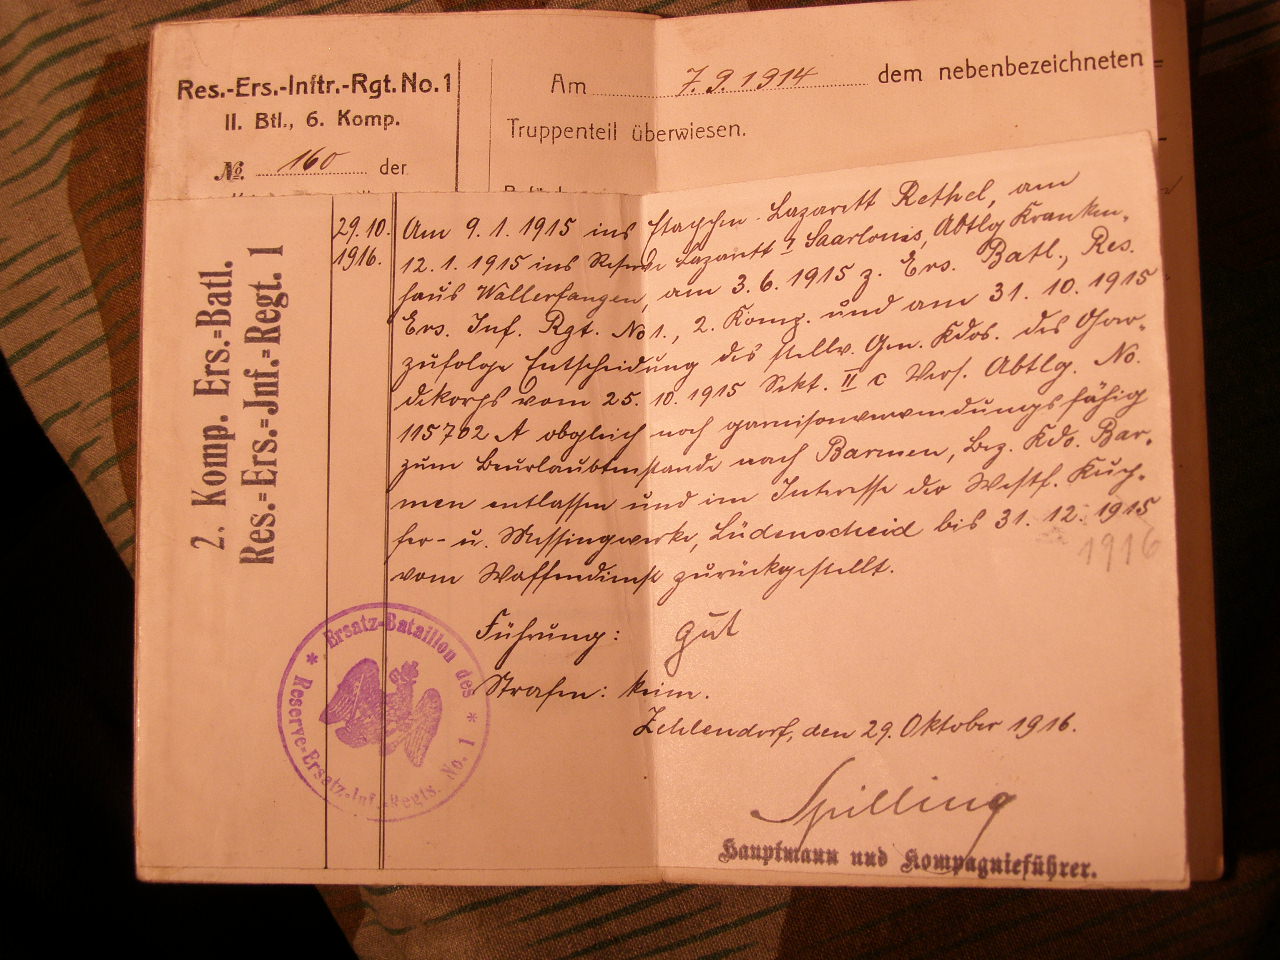 Res.-Ers.-Inftr.-Rgt. No. 1
II. Btl., 6. Komp.
No. 160 der
Am 7.9.1914 dem nebenbezeichneten
Truppenteil überwiesen.
2. Komp. Ers.=Batl.
Res.=Ers.=Inf.=Regt. 1
29.10.
1916.
Am 9. 1. 1915 ins Lazarett Rethel, am
12. 1. 1915 ins Reserve Lazarett Saarlouis, Abtlg Kranken-
haus Wallerfangen, am 3.6.1915 z. Ers. Batl., Res.
Ers. Inf. Rgt. No 1., 2. Komp. und am 31. 10. 1915
zufolge Entscheidung des stellv. Gen. Kdos. des Gar-
dekorps vom 25. 10. 1915 Sekt. II c Vers. Abtlg. No.
115702 A obgleich noch garnisonverwendungsfähig
zum Beurlaubtenstande nach Barmen, Bez. Kdo. Bar-
men entlassen und im Interesse der Westf. Kup-
fer- u. Messingwerke, Lüdenscheid bis 31. 12. 1915
1916
vom Waffendienst zurückgestellt.
Führung: gut
Strafen: keine.
Zehlendorf, den 29. Oktober 1916.
Spilling
Hauptmann und Kompagnieführer.
* Ersatz-Bataillon des *
Reserve-Ersatz-Inf.-Regts. No. 1